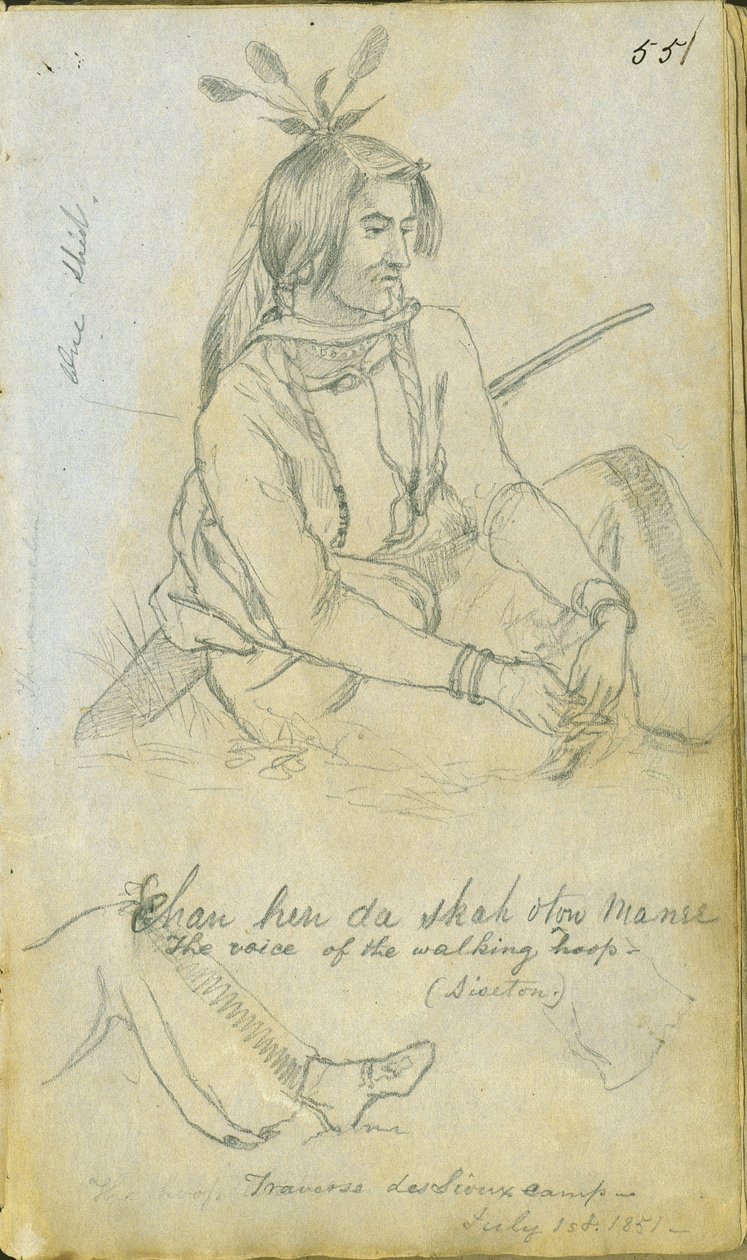 55
blue shirt.
Ehan hen da skah oton Manee
The voice of the walking hoop -
(Siseton.)
The hoop. Traverse des Sioux camp -
July 1st. 1851 -